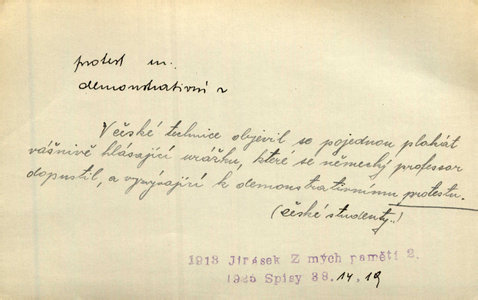 protest m.
demonstrativní
V české technice objevil se pojednou plakát
vášnivě hlásající urážku, které se německý professor
dopustil, a vyzývající k demonstrativnímu protestu.
(české studenty..)
1913 Jirásek Z mých pamětí 2.
19 6 Spisy 38. 14. 19